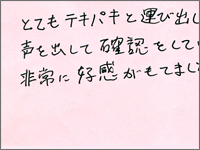 とてもテキパキと運び出し
声を出して確認をしてい
非常に好感がもてまし